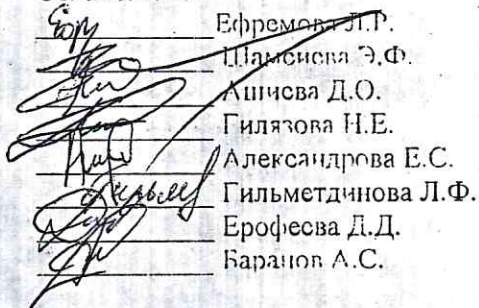 Ефремова Л.Р.
Шамсиева Э.Ф.
Ашиева Д.О.
Гилязова Н.Е.
Александрова Е.С.
Гильметдинова Л.Ф.
Ерофеева Д.Д.
Баранов А.С.